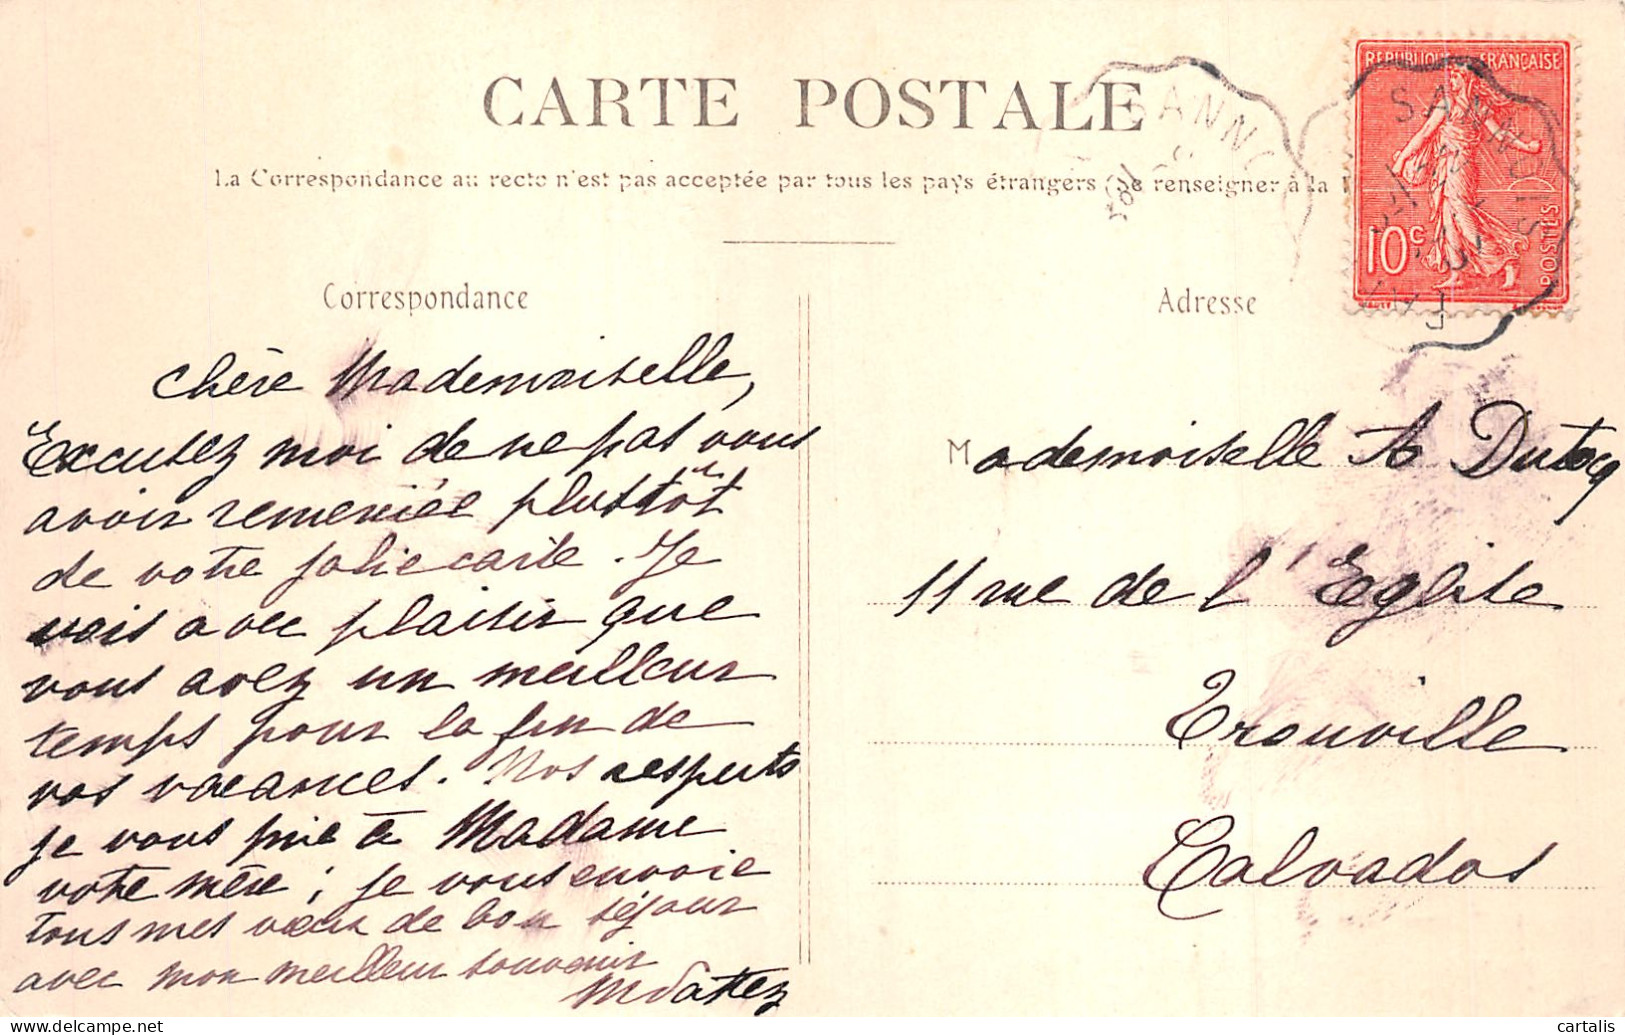 CARTE POSTALE
La Correspondance au recto n'est pas acceptée par tous les pays étrangers (Se renseigner à la
REPUBLIQUE FRANÇAISE
10c
POSTES
SANNOIS
SANNO
Correspondance
Chère Mademoiselle,
Excusez moi de ne pas vous
avoir remerciée plustôt
de votre jolie carte. Je
vois avec plaisir que
vous avez un meilleur
temps pour la fin de
vos vacances. Nos respects
je vous prie à Madame
votre mère ; je vous envoie
tous mes vœux de bon séjour
avec mon meilleur souvenir
Adresse
Mademoiselle A Dutocq
11 rue de l'Eglise
Trouville
Calvados
cartalis